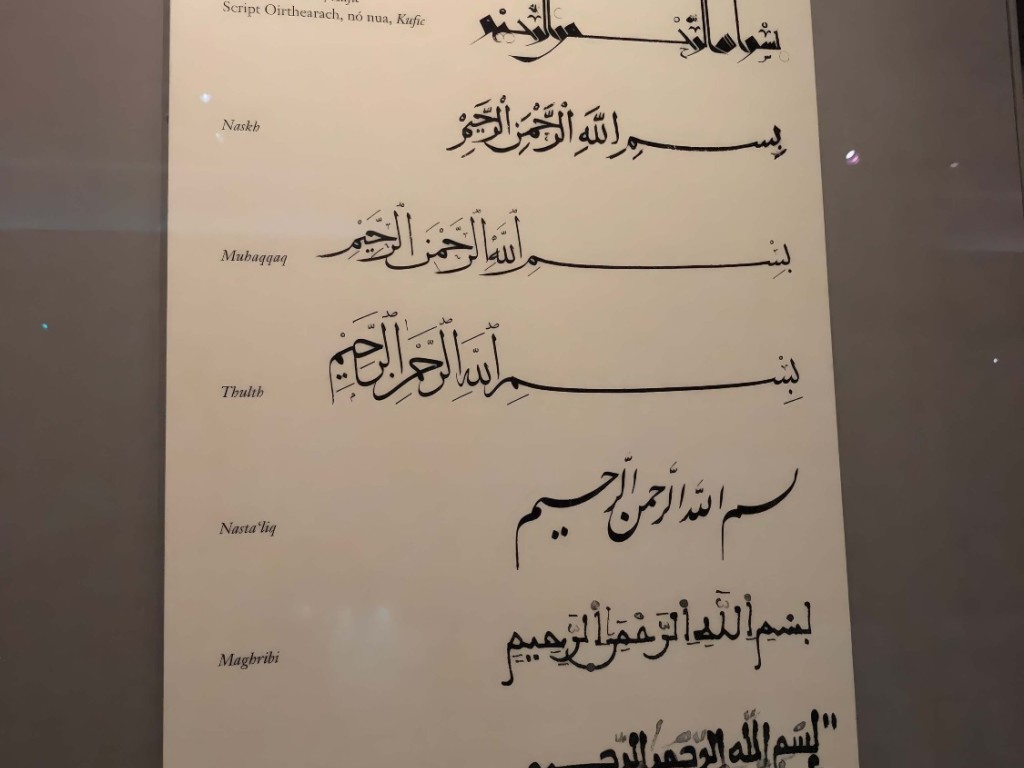 Script Oirthearach, nó nua, Kufic
بسم الله الرحمن الرحيم
Naskh
بِسْمِ اللَّهِ الرَّحْمَنِ الرَّحِيمِ
Muhaqqaq
بِسْمِ اللَّهِ الرَّحْمَنِ الرَّحِيمِ
Thulth
بِسْمِ اللَّهِ الرَّحْمَنِ الرَّحِيمِ
Nastaʿlíq
بسم الله الرحمن الرحيم
Maghribi
بِسْمِ اللَّهِ الرَّحْمَنِ الرَّحِيمِ
بِسْمِ اللَّهِ الرَّحْمَنِ الرَّحِيمِ